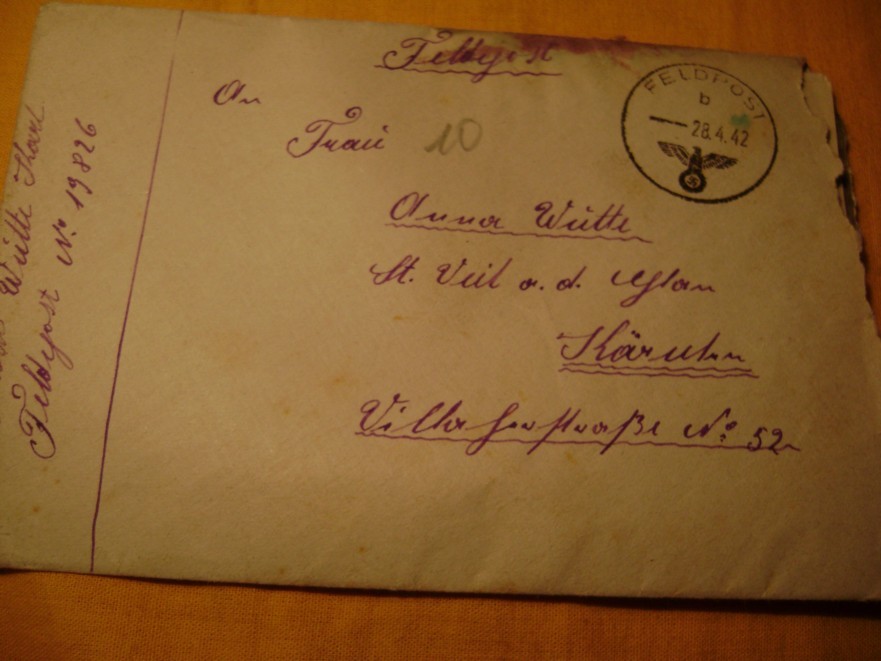 Feldpost
FELDPOST
b
28.4.42
An
Frau
10
Anna Wutte
St. Veit a. d. Glan
Kärnten
Villacherstraße No 52
Wutte Karl
Feldpost No 19826